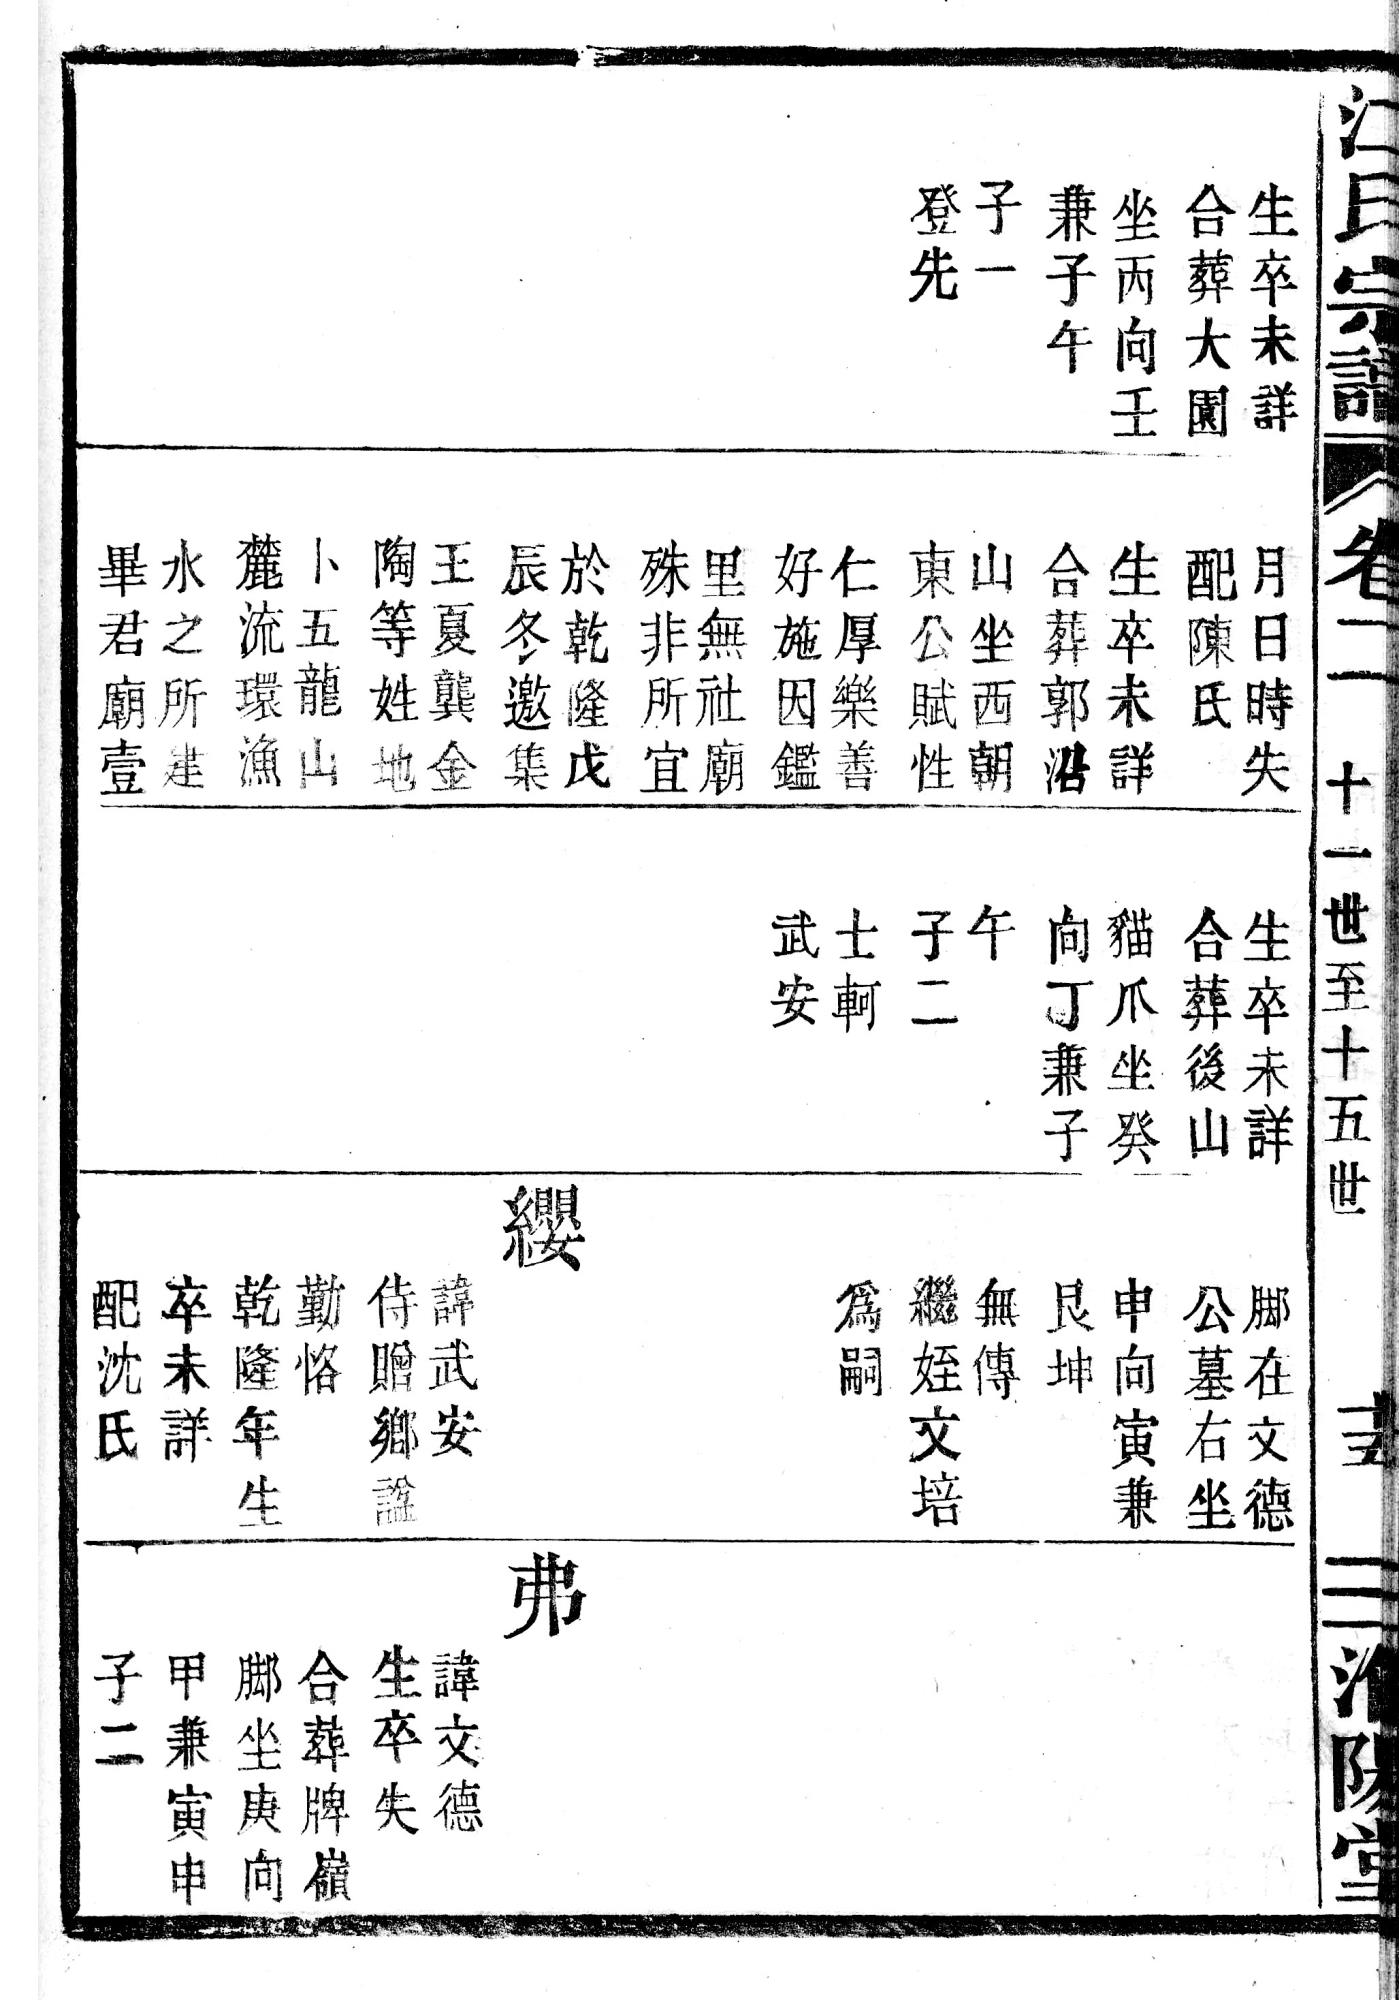 江氏宗譜
卷二
十一世至十五世
十五
淮陽堂
生卒未詳
合葬大園
坐丙向壬
兼子午
子一
登先
月日時失
配陳氏
生卒未詳
合葬郭沿
山坐西朝
東公賦性
仁厚樂善
好施因鑑
里無社廟
殊非所宜
於乾隆戊
辰冬邀集
王夏龔金
陶等姓地
卜五龍山
麓流環漁
水之所建
畢君廟壹
生卒未詳
合葬後山
貓爪坐癸
向丁兼子
午
子二
士軻
武安
脚在文德
公墓右坐
申向寅兼
艮坤
無傳
繼姪文培
爲嗣
纓
諱武安
侍贈鄉謚
勤恪
乾隆年生
卒未詳
配沈氏
弗
諱文德
生卒失
合葬牌嶺
脚坐庚向
甲兼寅申
子二